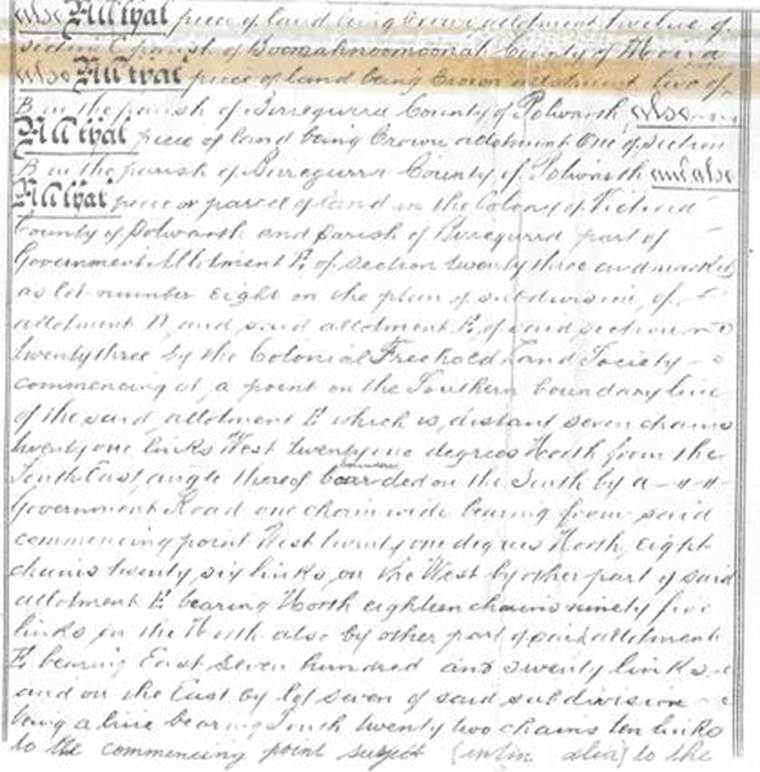 also All that piece of land being Crown allotment twelve of
section C parish of Boomahnoomoonah County of Moira
also All that piece of land being Crown allotment two of
B in the parish of Birregurra County of Polwarth also
All that piece of land being Crown allotment One of section
B in the parish of Birregurra County of Polwarth and also
All that piece or parcel of land in the Colony of Victoria
County of Polwarth and parish of Birregurra part of
Government Allotment E of section twenty three and marked
as lot number Eight on the plan of subdivision of
allotment D and said allotment E of said section
twenty three by the Colonial Freehold Land Society
commencing at a point on the Southern boundary line
of the said allotment E which is distant seven chains
twenty one links West twenty one degrees North from the
South East angle thereof bounded on the South by a
Government Road one chain wide bearing from said
commencing point West twenty one degrees North eight
chains twenty six links on the West by other part of said
allotment E bearing North eighteen chains ninety five
links on the North also by other part of said allotment
E bearing East Seven hundred and twenty links
and on the East by lot seven of said subdivision
being a line bearing South twenty two chains ten links
to the commencing point subject (inter alia) to the